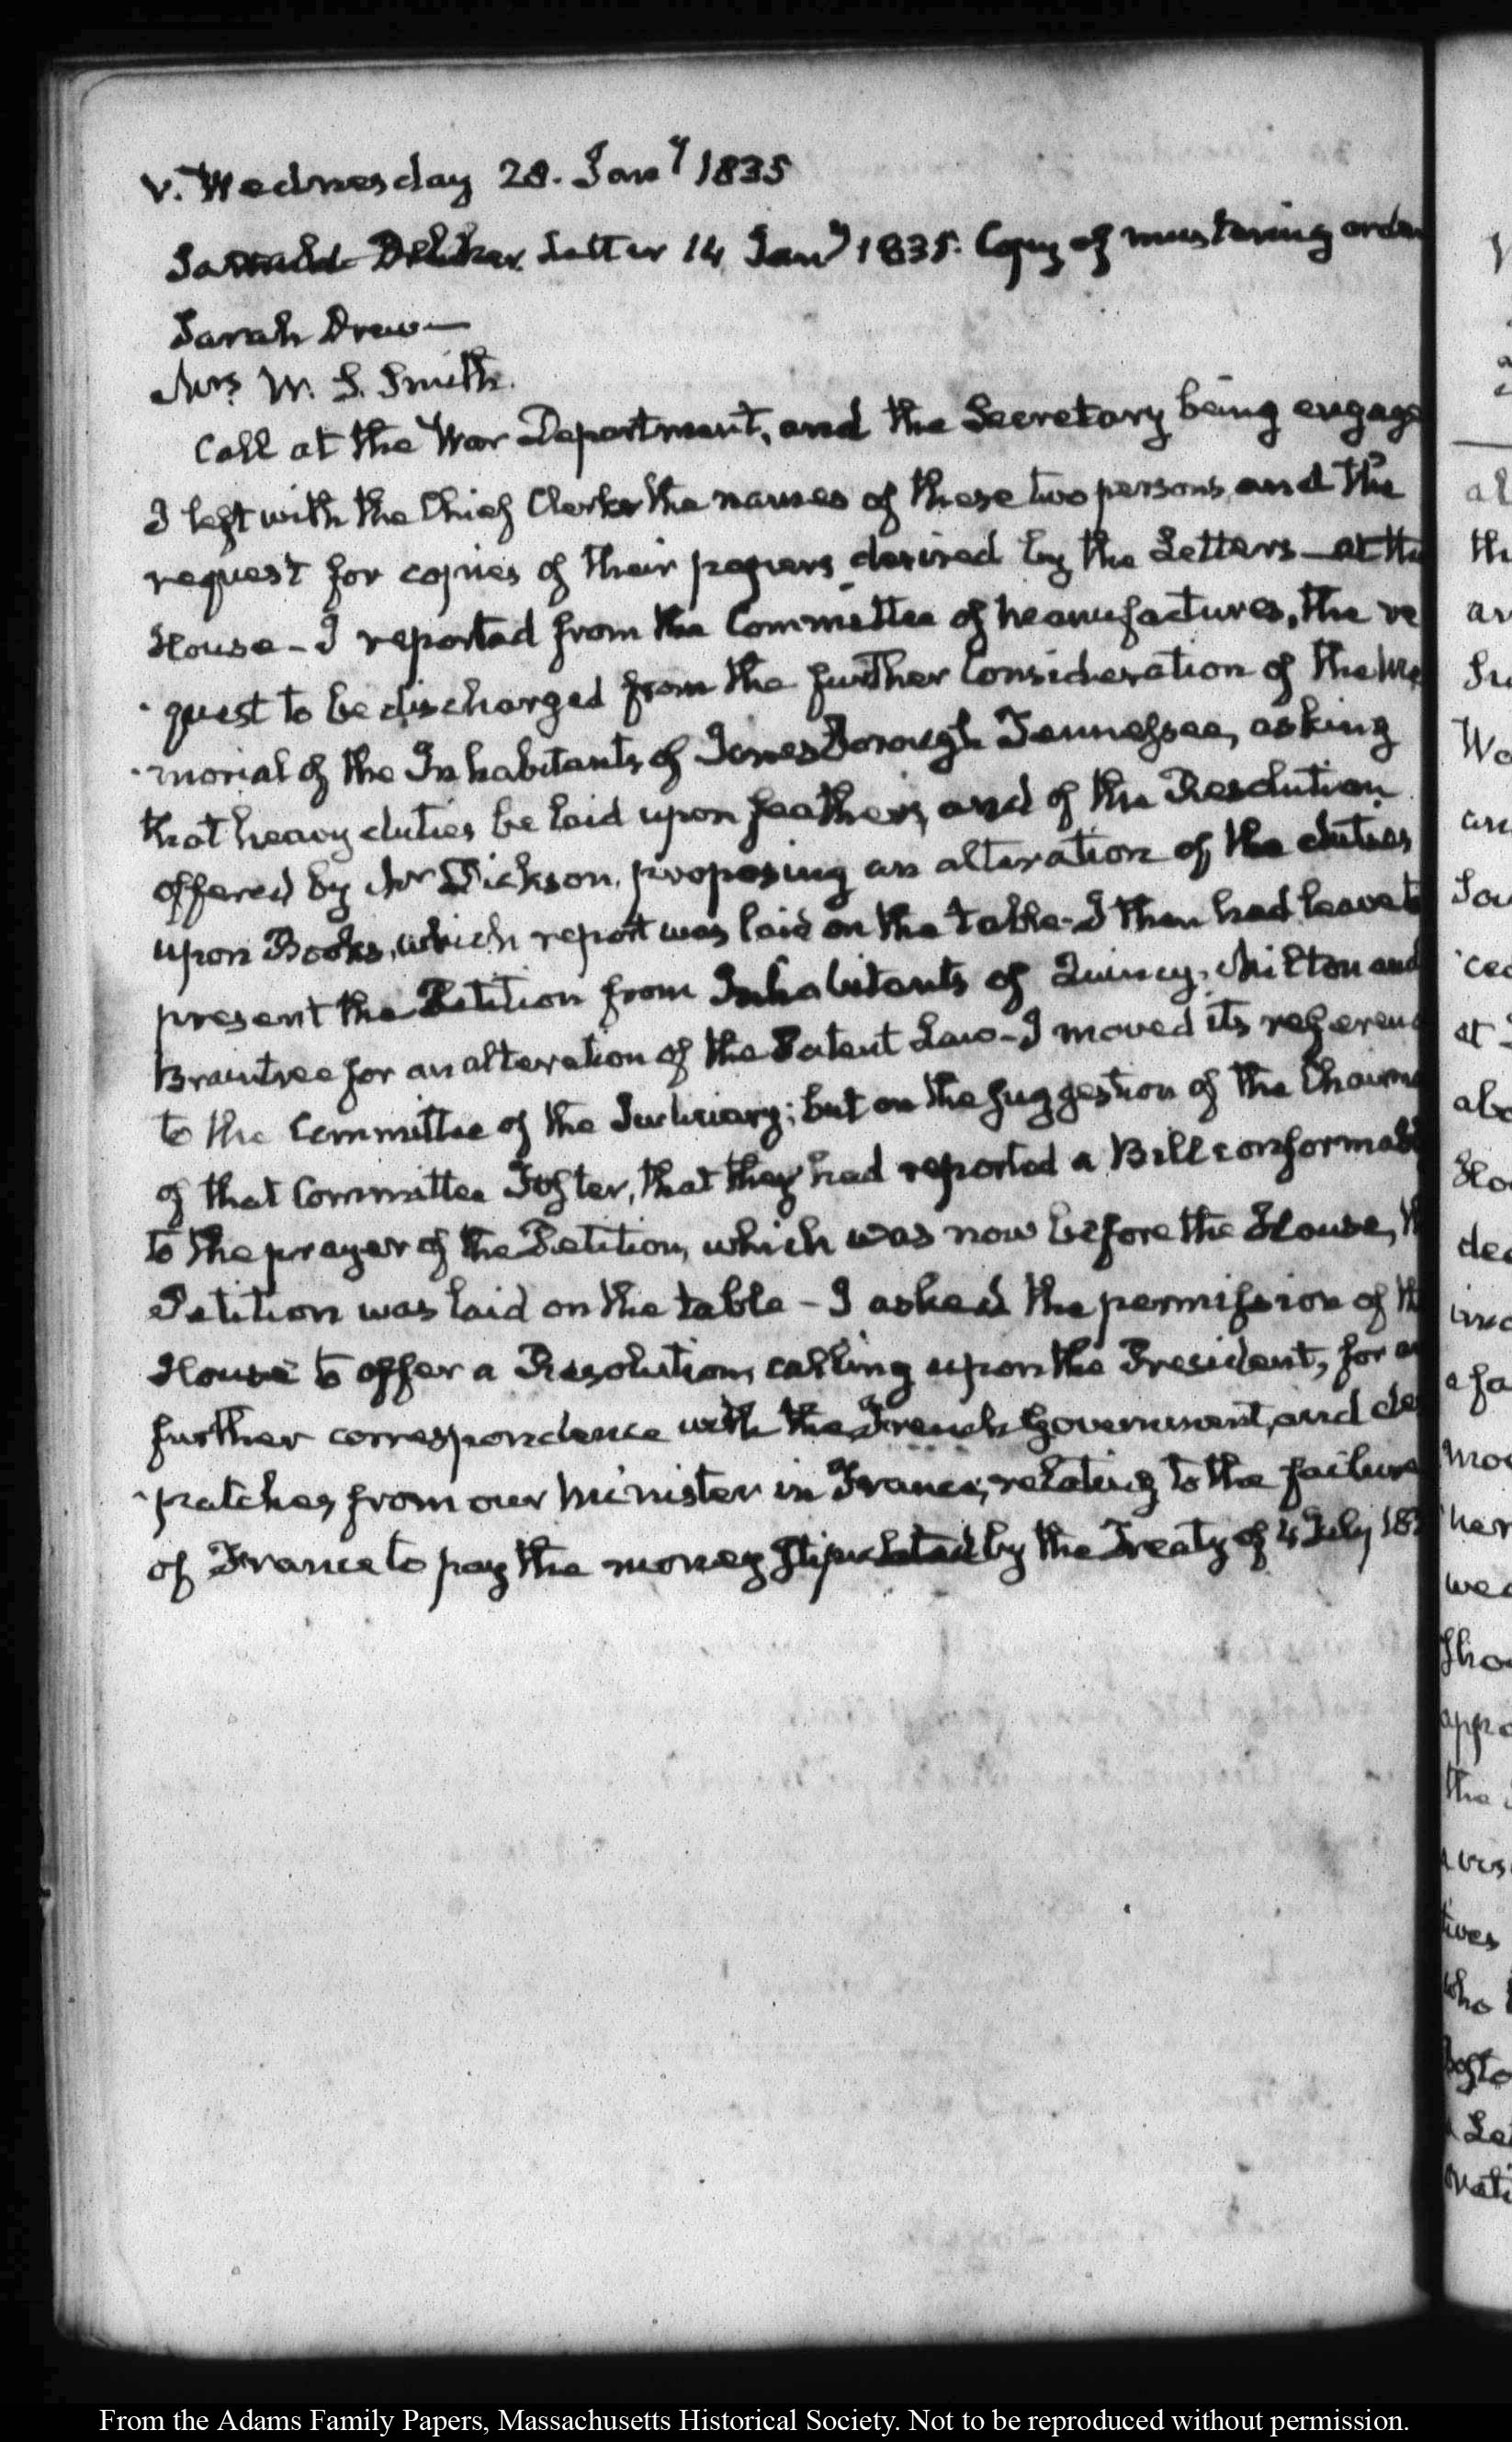 V. Wednesday 28. Jany 1835
Letter 14 Jany 1835. Copy of mustering order
Sarah Drew—
Mrs W. S. Smith.
Call at the War Department, and the Secretary being engage
I left with the Chief Clerk the names of these two persons and the
request for copies of their papers desired by the Letters—at the
House—I reported from the Committee of Manufactures, the re
quest to be discharged from the further Consideration of the Me
morial of the Inhabitants of Jonesborough Tennessee, asking
that heavy duties be laid upon feathers, and of the Resolution
offered by Mr Dickson, proposing an alteration of the duties
upon Books, which report was laid on the table—I then had leave to
present the Petition from Inhabitants of Quincy, Milton and
Braintree for an alteration of the Patent Law—I moved its referenc
to the Committee of the Judiciary; but on the suggestion of the Chairma
of that Committee Foster, that they had reported a Bill conformabl
to the prayer of the Petition, which was now before the House, th
Petition was laid on the table—I asked the permission of th
House to offer a Resolution, calling upon the President, for an
further correspondence with the French Government, and des
patches from our Minister in France, relating to the failure
of France to pay the money stipulated by the Treaty of 4 July 183
From the Adams Family Papers, Massachusetts Historical Society. Not to be reproduced without permission.